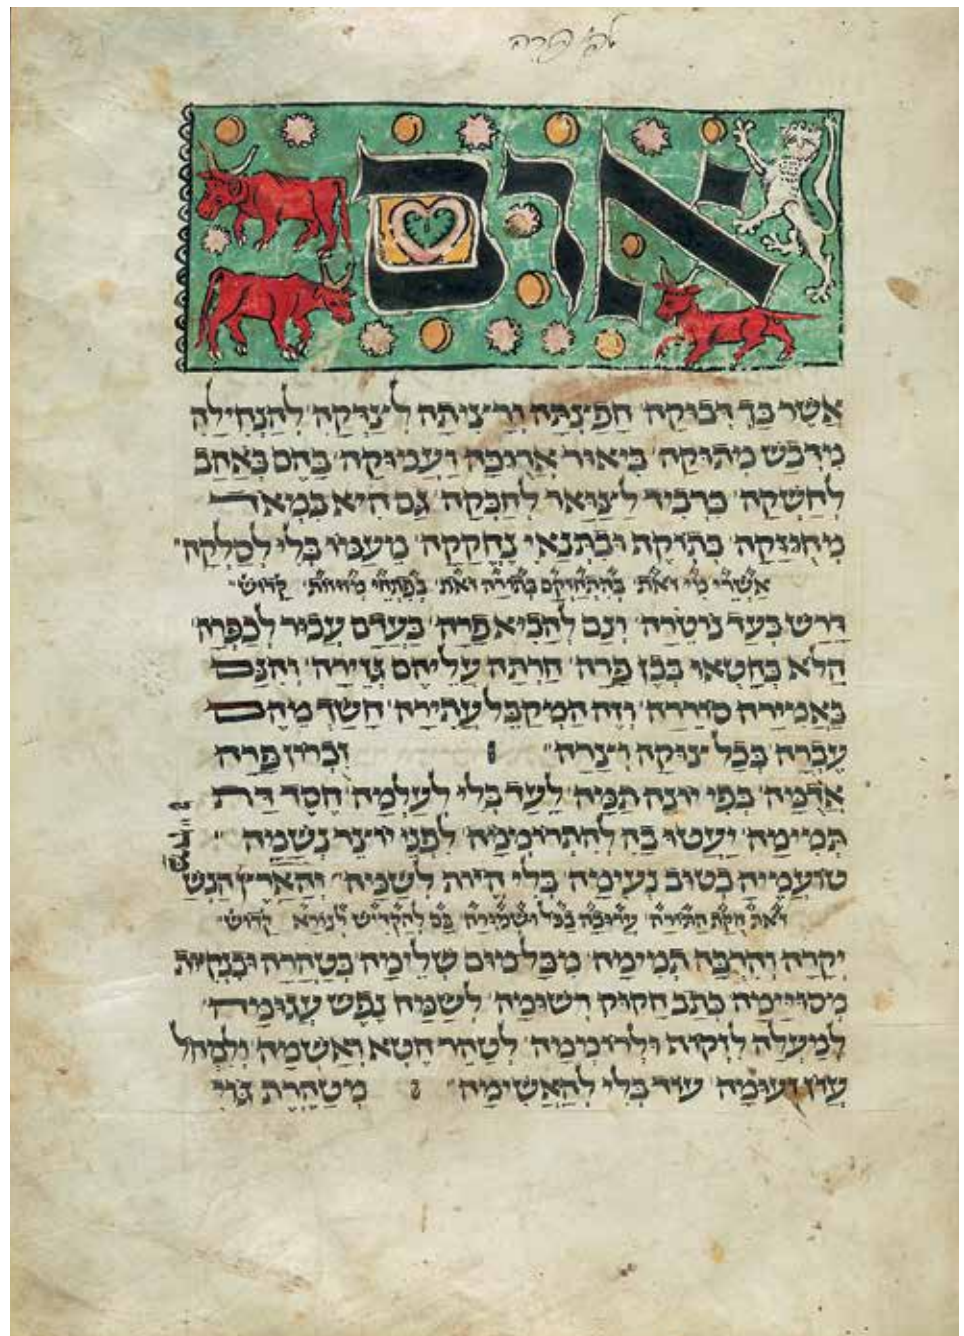 לפ' פרה
אום
אשר בך דבוקה חפצתה ורציתה לצדקה להנחילה
מדבש מתוקה ביאור ארוכה ועמוקה בהם באהב
לחשקה כרביד לצואר לחבקה גם היא במאה
בתוקת ובתנאי נחקקה מעמו בלי לסלקה
אשרי מי זאת בתורה זאת קדוש
דרש בעד ונם להביא פרה בעדם עבור לכפרה
הלא בחטאו בבן פרה חרתה עליהם גזירה והנם
באמירה סדורה וזה המקבל עתירה חשך מהם
עברה בכל צוקה וצרה זכרון פרה
אדומה בפי יונה תמה לעד בלי לעלמה חסד דת
תמימה יעטו בה להתרוממה לפני יוצר נשמה
טועמיה בטוב נעימיה בלי היות לשמיה והארץ הנש
זאת חקת התורה ערוכה בכל ושמורה בם להקדיש לנורא קדוש
יקרה והרבה תמימה מכל מום שלימה בטהרה ובנקיות
מסויימה כתב חקוק רשומה לשמה נפש עגומה
למעלה לזקוה ולרוממה לטהר חטא ואשמה ולמחל
עון ועומה עוד בלי להאשימה מטהרת גוי